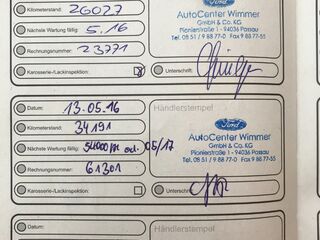 Kilometerstand: 26077
Nächste Wartung fällig: 5.16
Rechnungsnummer: 23771
Karosserie-/Lackinspektion:
Unterschrift:
Ford
AutoCenter Wimmer
GmbH & Co. KG
Pionierstraße 1 - 94036 Passau
Tel. 08 51 / 9 88 77-0 Fax 9 88 77-55
Datum: 13.05.16
Kilometerstand: 34191
Nächste Wartung fällig: 54000 km od. 05/17
Rechnungsnummer: 61301
Karosserie-/Lackinspektion:
Händlerstempel
Ford
AutoCenter Wimmer
GmbH & Co. KG
Pionierstraße 1 - 94036 Passau
Tel. 08 51 / 9 88 77-0 Fax 9 88 77-55
Unterschrift:
Datum:
Händlerstempel